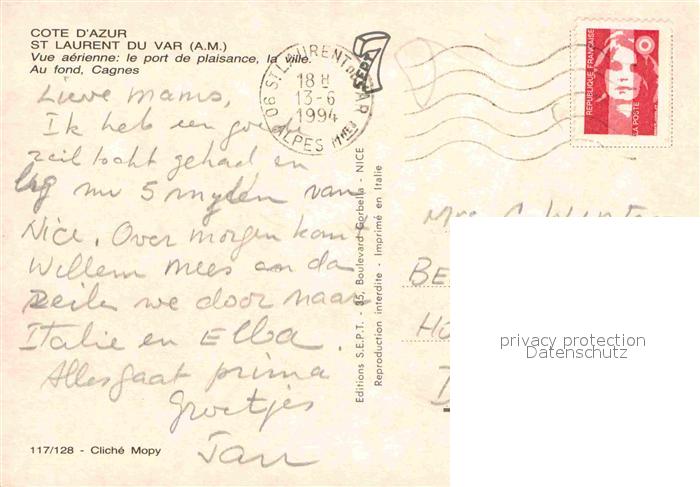 COTE D'AZUR
ST LAURENT DU VAR (A.M.)
Vue aérienne: le port de plaisance, la ville.
Au fond, Cagnes
Lieve mams,
Ik heb een goede
zeiltocht gehad en
lig nu 5 mylen van
Nice. Over morgen komt
Willem Mees en dan
zeilen we door naar
Italie en Elba.
Alles gaat prima
Groetjes
Jan
117/128 - Cliché Mopy
06 ST LAURENT DU VAR
18 H
13-6
1994
ALPES MMES
SEPT
Editions S.E.P.T. - 35, Boulevard Gorbella - NICE
Reproduction interdite - Imprimé en Italie
REPUBLIQUE FRANÇAISE
LA POSTE
BE
HO
privacy protection
Datenschutz